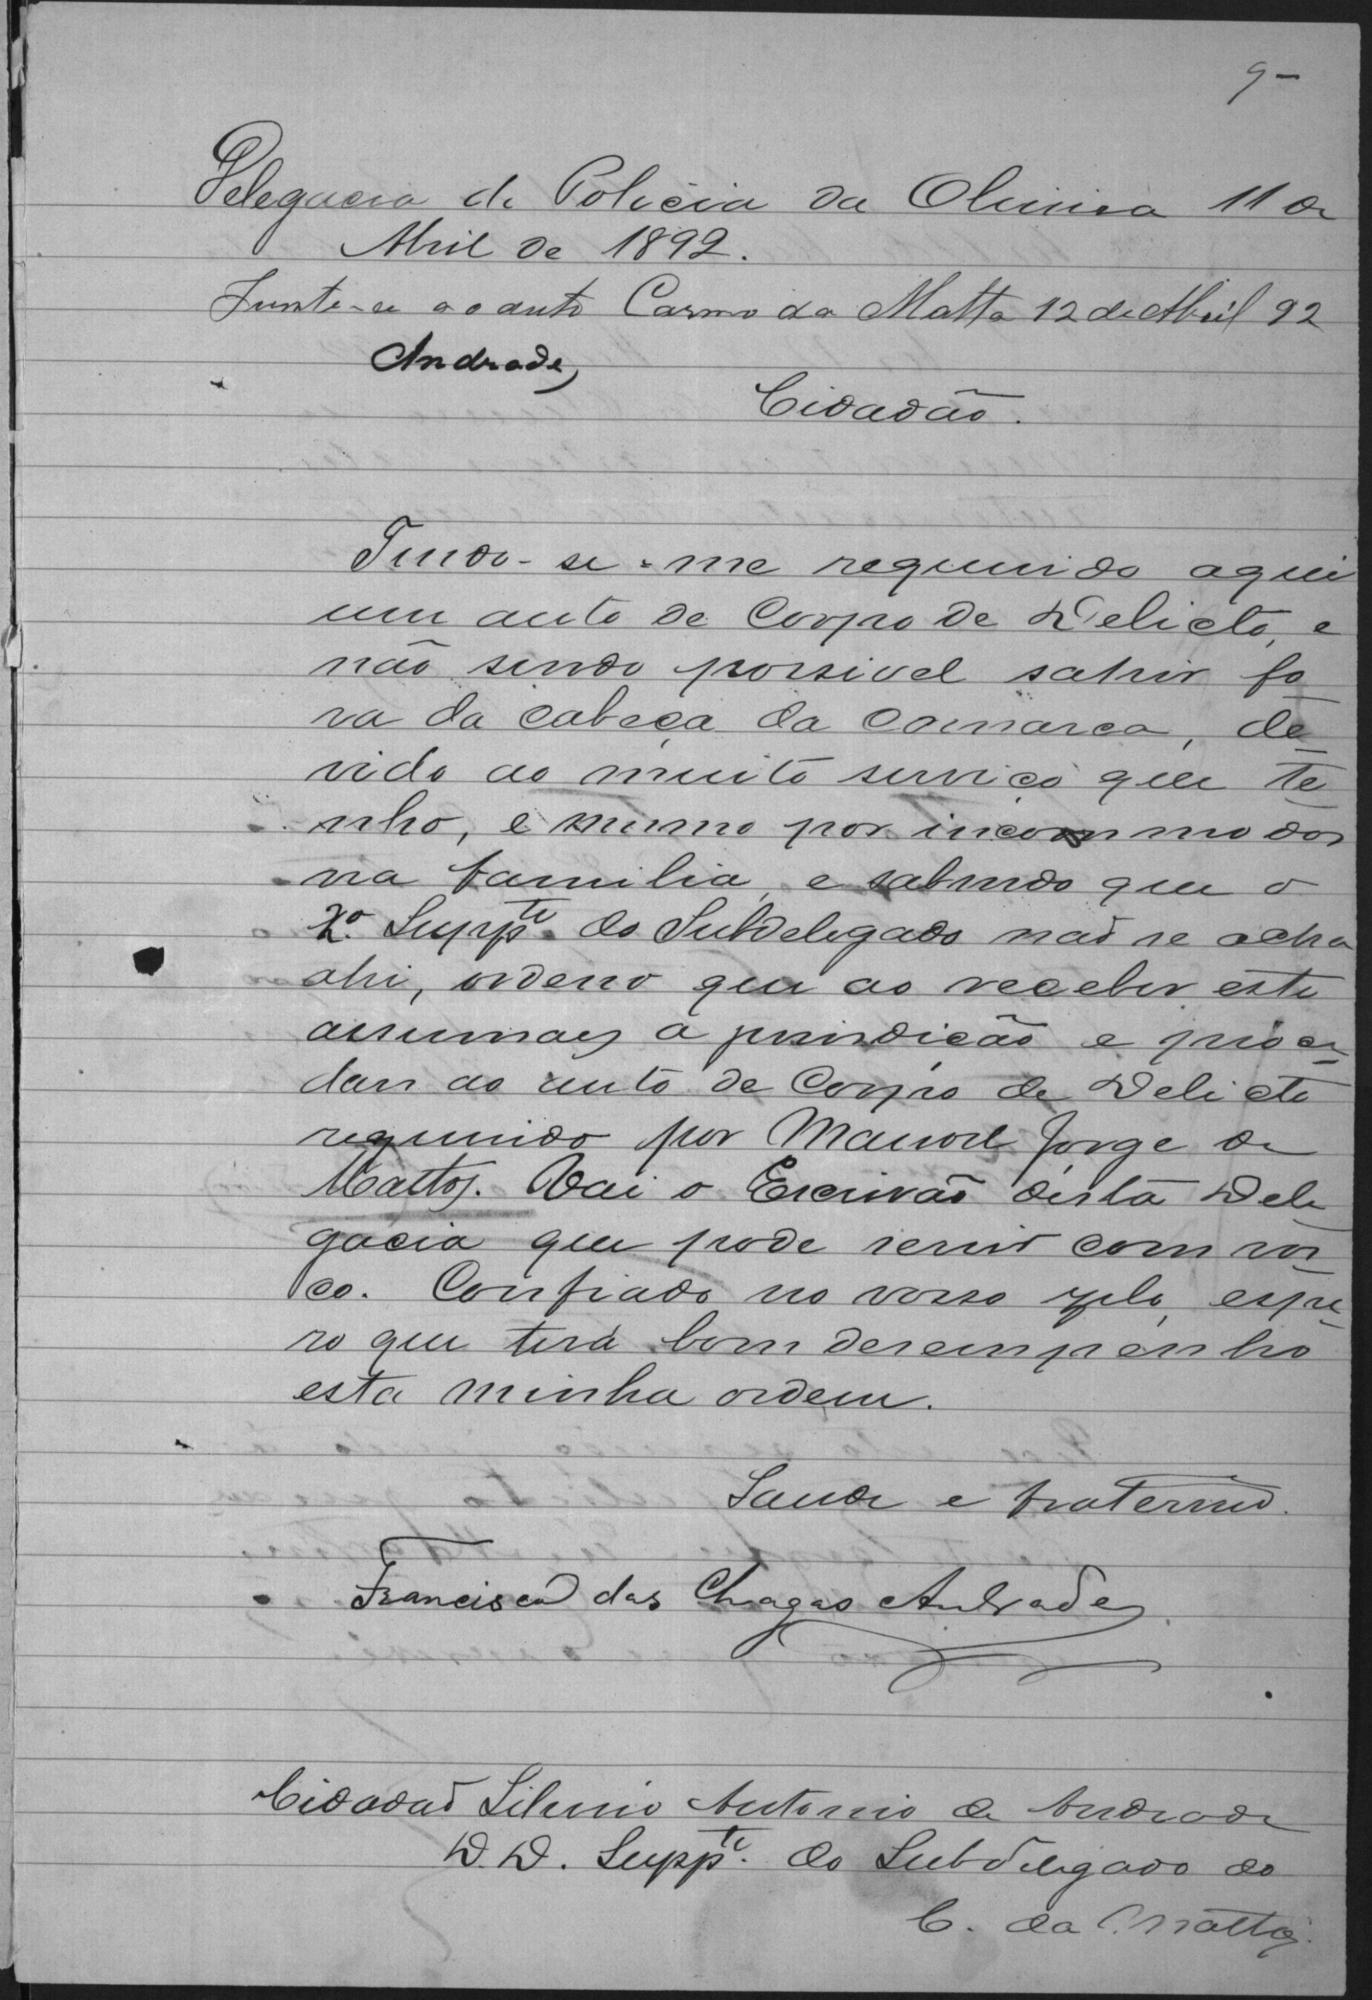 9-
Delegacia de Policia da Oliveira 11 de
Abril de 1892.
Junte-se ao auto Carmo da Matta 12 de Abril 92
Andrade
Cidadão.
Tendo-se-me requerido aqui
um auto de Corpo de Delicto, e
não sendo possivel sahir fo
ra da cabeça da Comarca, de
vido ao muito serviço que te
nho, e mesmo por incommodos
na familia, e sabendo que o
2º Suppte. do Subdelegado não se acha
ahi, ordeno que ao receber este
assumaes a jurisdicão e proce
dan ao auto de Corpo de Delicto
requerido por Manoel Jorge de
Mattos. Vai o Escrivão desta Dele
gacia que pode servir com vos
co. Confiado no vosso zelo, espe
ro que terá bom desempenho
esta minha ordem.
Saude e fraternid.
Francisco das Chagas Andrade
Cidadão Silverio Antonio de Andrade
D. D. Suppte. do Subdelegado do
C. da Matta